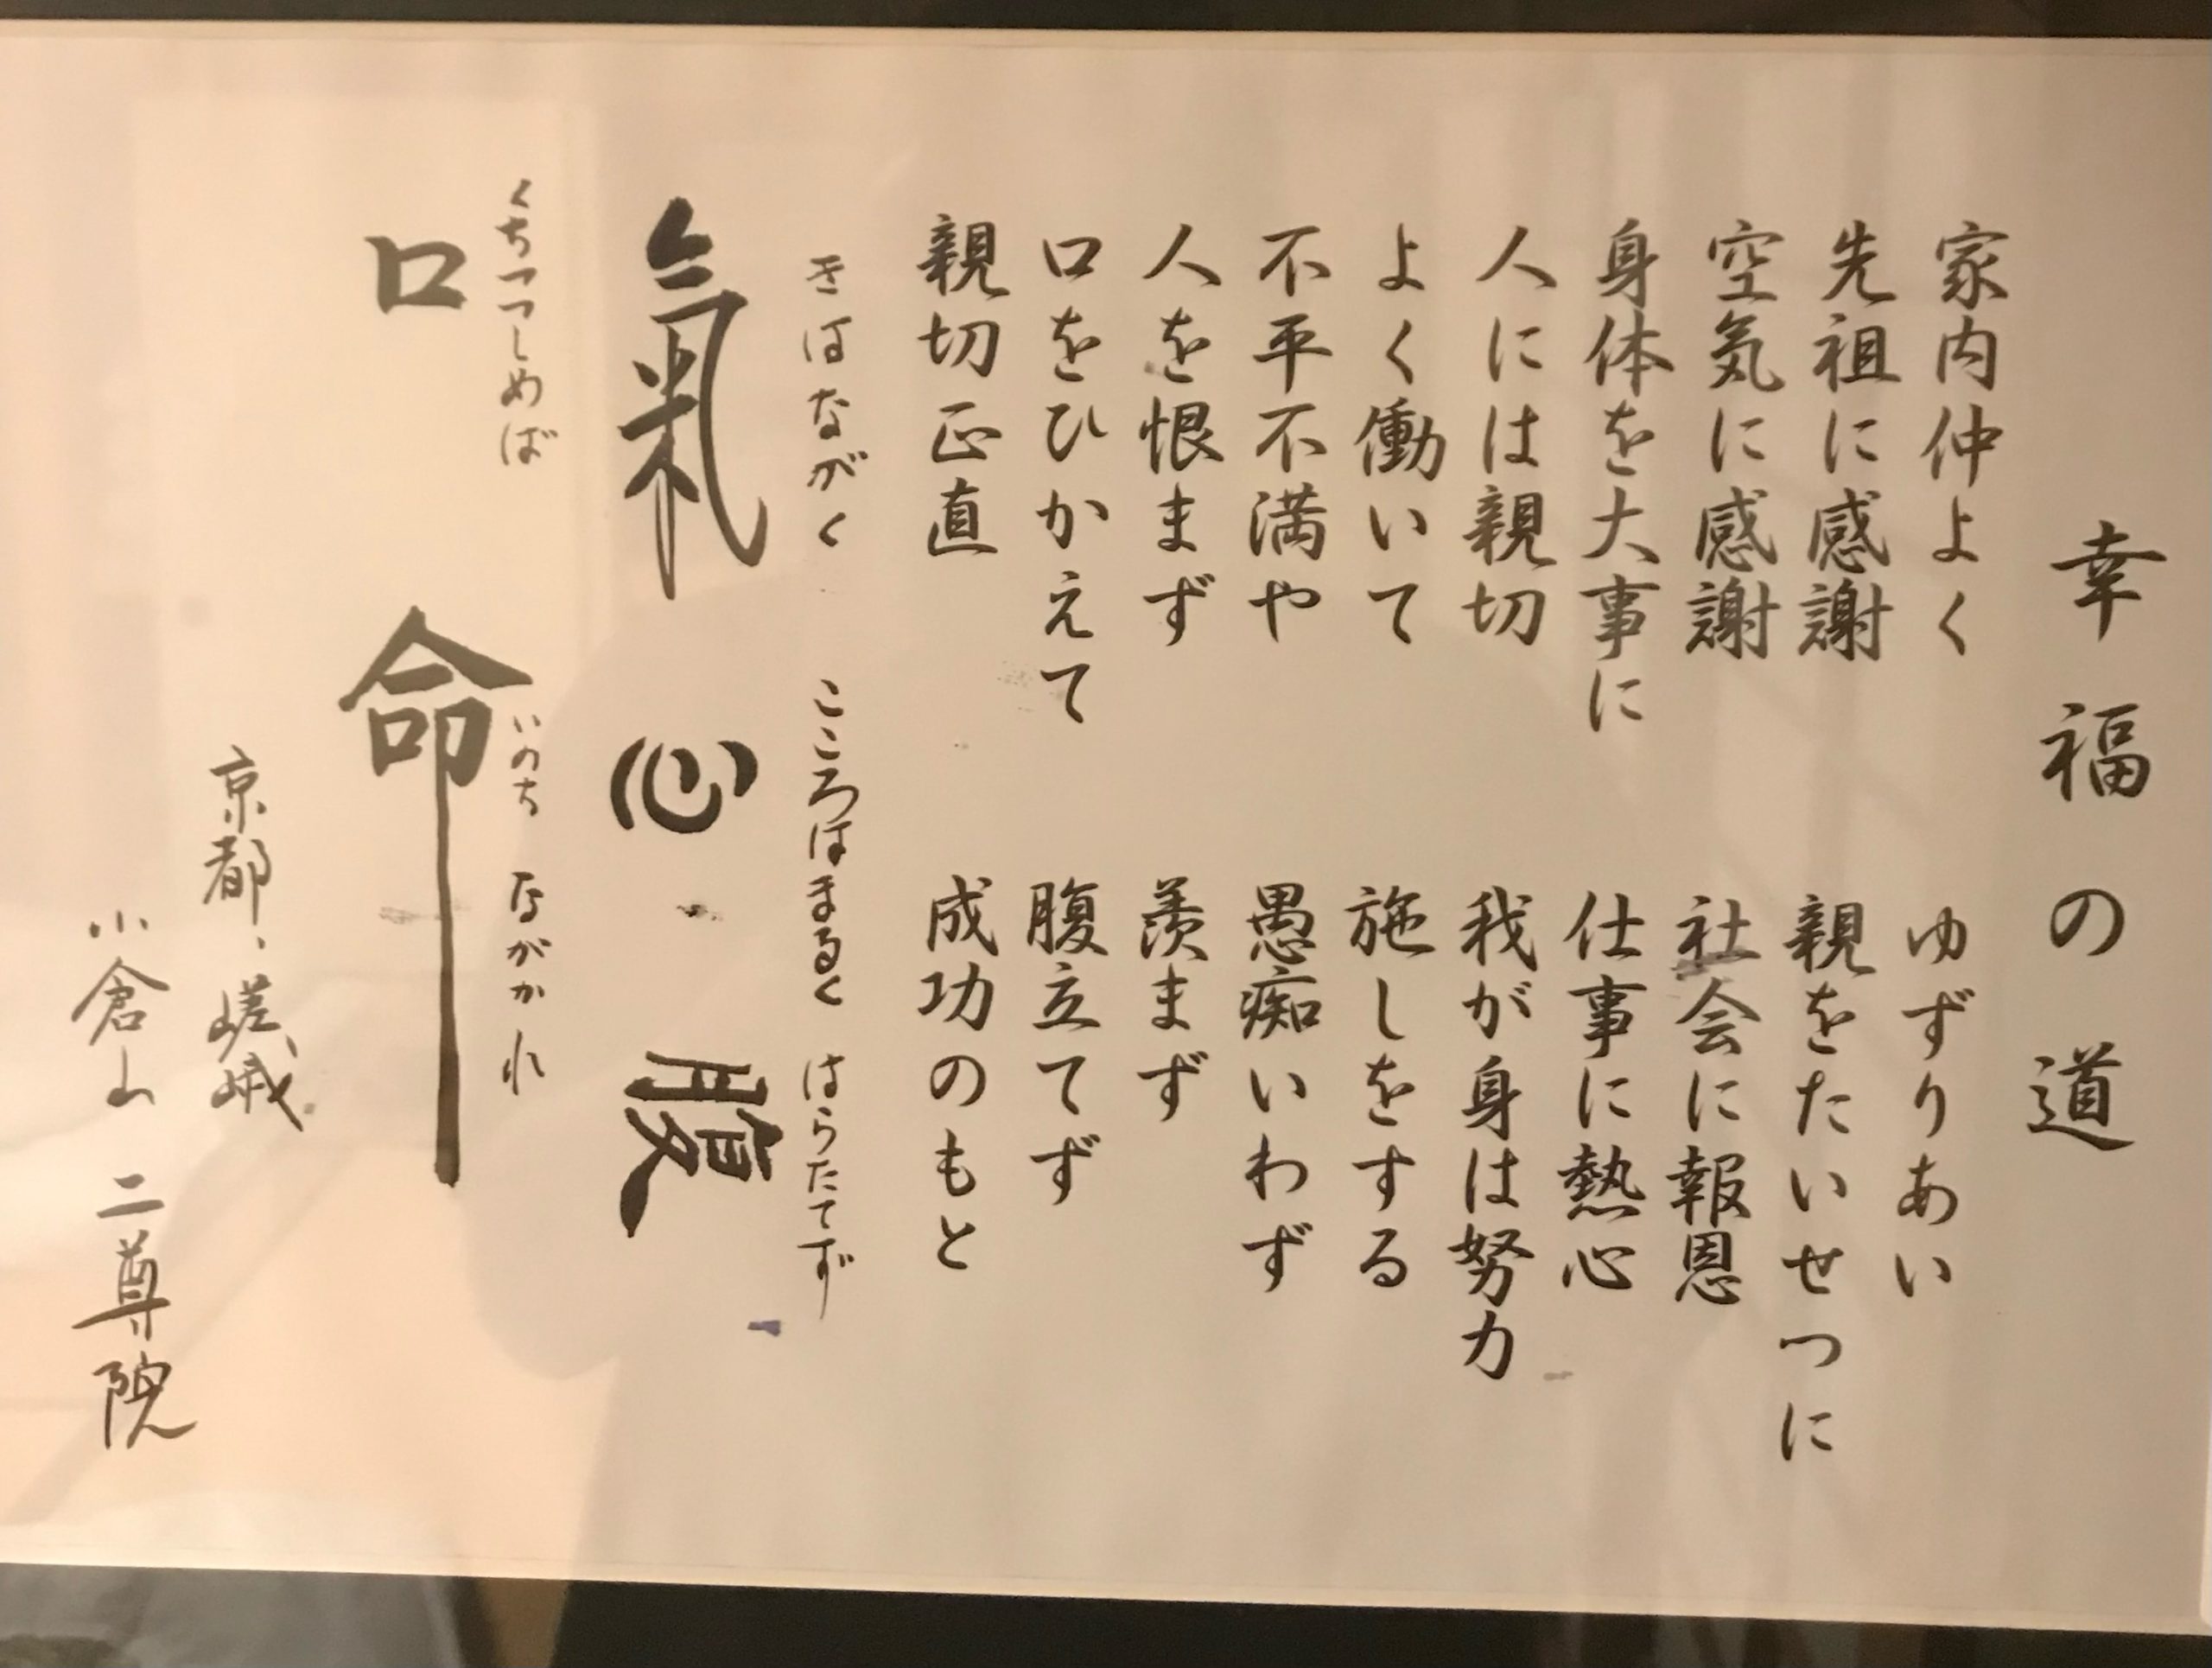 幸福の道
家内仲よく ゆずりあい
先祖に感謝 親をたいせつに
空気に感謝 社会に報恩
身体を大事に 仕事に熱心
人には親切 我が身は努力
よく働いて 施しをする
不平不満や 愚痴いわず
人を恨まず 羨まず
口をひかえて 腹立てず
親切正直 成功のもと
きはながく こころはまるく はらたてず
氣 心 腹
くちつつしめば いのち ながかれ
口 命
京都、嵯峨
小倉山 二尊院